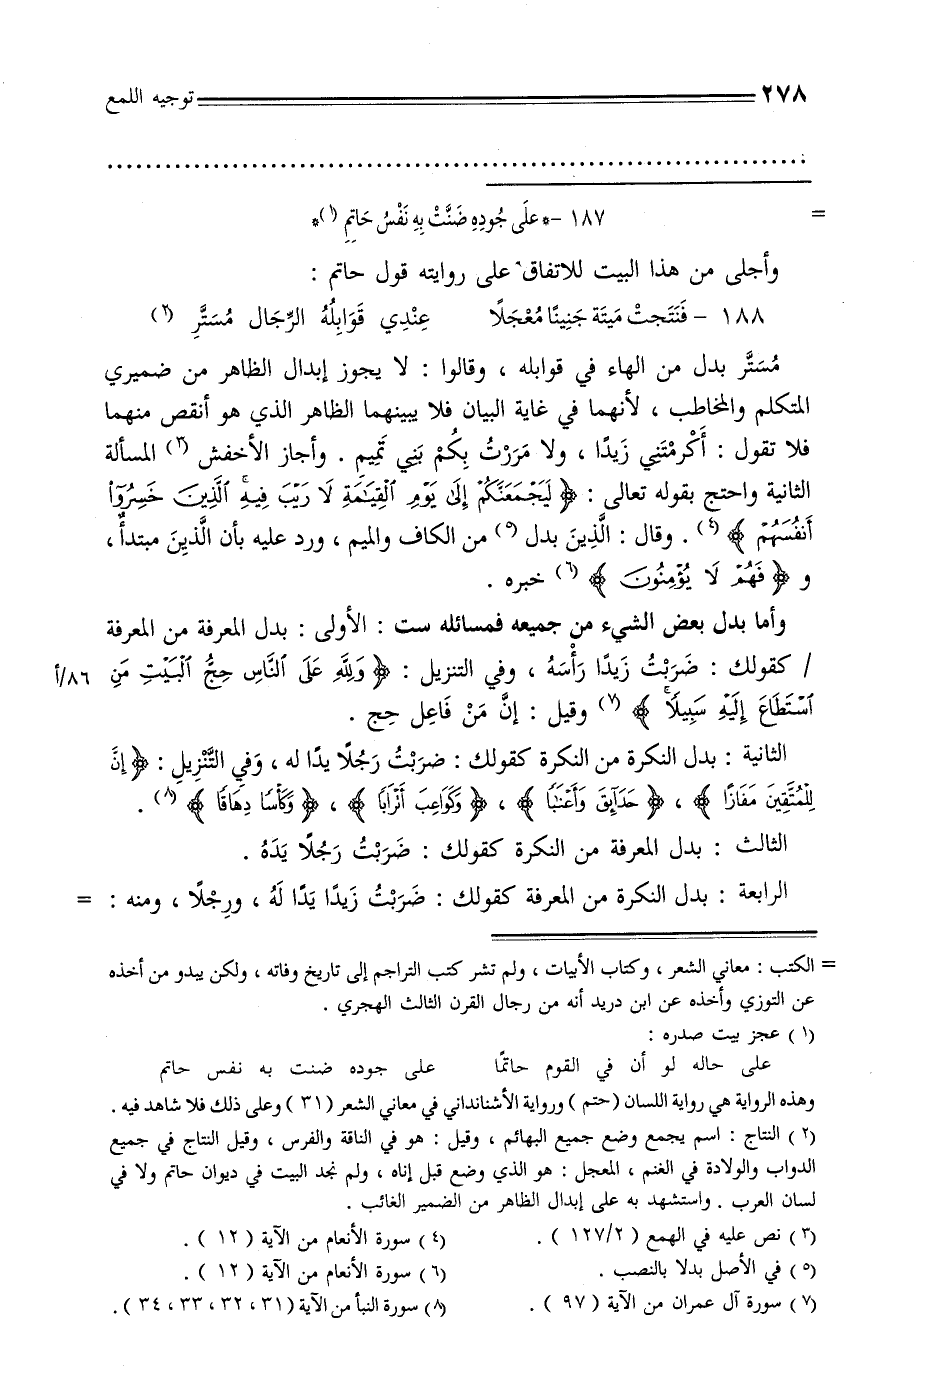 ٢٧٨ توجيه اللمع
........................................................................
= ١٨٧ -* علَى جُودِهِ ضَنَّتْ بِهِ نَفْسُ حَاتِمِ (١)*
وأجلى من هذا البيت للاتفاق على روايته قول حاتم :
١٨٨ - فَنَتَجتْ مَيتَة جَنِينًا مُعْجَلًا عِنْدِي قَوَابِلُهُ الرِّجَال مُسَتَّرِ (٢)
مُسَتَّر بدل من الهاء في قوابله ، وقالوا : لا يجوز إبدال الظاهر من ضميري
المتكلم والمخاطب ، لأنهما في غاية البيان فلا يبينهما الظاهر الذي هو أنقص منهما
فلا تقول : أَكْرَمْتَنِي زَيدًا ، ولا مَرَرْتُ بِكُمْ بَنِي تَمِيم . وأجاز الأخفش (٣) المسألة
الثانية واحتج بقوله تعالى : ﴿ لَيَجْمَعَنَّكُمْ إِلَىٰ يَوْمِ ٱلْقِيَٰمَةِ لَا رَيْبَ فِيهِ ۚ ٱلَّذِينَ خَسِرُوٓا۟
أَنفُسَهُمْ ﴾ (٤) . وقال : الَّذِينَ بدل (٥) من الكاف والميم ، ورد عليه بأن الَّذِينَ مبتدأٌ ،
و ﴿ فَهُمْ لَا يُؤْمِنُونَ ﴾ (٦) خبره .
وأما بدل بعض الشيء من جميعه فمسائله ست : الأولى : بدل المعرفة من المعرفة
/ كقولك : ضَرَبْتُ زَيدًا رَأْسَهُ ، وفي التنزيل : ﴿ وَلِلَّهِ عَلَى ٱلنَّاسِ حِجُّ ٱلْبَيْتِ مَنِ ٨٦/أ
ٱسْتَطَاعَ إِلَيْهِ سَبِيلًا ۚ ﴾ (٧) وقيل : إنَّ مَنْ فَاعِل حِج .
الثانية : بدل النكرة من النكرة كقولك : ضربْتُ رَجُلًا يدًا له ، وَفي التَّنْزِيلِ : ﴿ إِنَّ
لِلْمُتَّقِينَ مَفَازًا ﴾ ، ﴿ حَدَآئِقَ وَأَعْنَٰبًا ﴾ ، ﴿ وَكَوَاعِبَ أَتْرَابًا ﴾ ، ﴿ وَكَأْسًا دِهَاقًا ﴾ (٨) .
الثالث : بدل المعرفة من النكرة كقولك : ضَرَبْتُ رَجُلًا يَدَهُ .
الرابعة : بدل النكرة من المعرفة كقولك : ضَرَبْتُ زَيدًا يَدًا لَهُ ، ورِجْلًا ، ومنه : =
= الكتب : معاني الشعر ، وكتاب الأبيات ، ولم تشر كتب التراجم إلى تاريخ وفاته ، ولكن يبدو من أخذه
عن التوزي وأخذه عن ابن دريد أنه من رجال القرن الثالث الهجري .
(١) عجز بيت صدره :
على حاله لو أن في القوم حاتمًا على جوده ضنت به نفس حاتم
وهذه الرواية هي رواية اللسان (حتم) ورواية الأشنانداني في معاني الشعر (٣١) وعلى ذلك فلا شاهد فيه .
(٢) النتاج : اسم يجمع وضع جميع البهائم ، وقيل : هو في الناقة والفرس ، وقيل النتاج في جميع
الدواب والولادة في الغنم ، المعجل : هو الذي وضع قبل إناه ، ولم نجد البيت في ديوان حاتم ولا في
لسان العرب . واستشهد به على إبدال الظاهر من الضمير الغائب .
(٣) نص عليه في الهمع ( ١٢٧/٢ ) . (٤) سورة الأنعام من الآية ( ١٢ ) .
(٥) في الأصل بدلا بالنصب . (٦) سورة الأنعام من الآية ( ١٢ ) .
(٧) سورة آل عمران من الآية ( ٩٧ ) . (٨) سورة النبأ من الآية ( ٣١ ، ٣٢ ، ٣٣ ، ٣٤ ) .